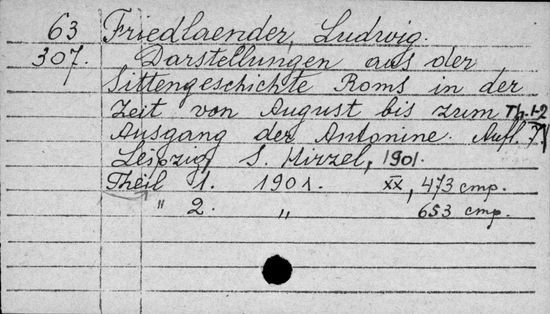 63 Friedlaender, Ludwig.
307. Darstellungen aus der
Sittengeschichte Roms in der
Zeit von August bis zum Th. 1-2
Ausgang der Antonine. Aufl. 7.
Leipzig, S. Hirzel, 1901.
Theil 1. 1901. XX, 473 стр.
" 2. " 653 стр.